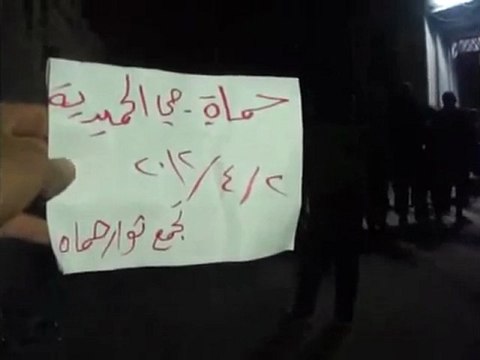 حماة - حي الحميدية
٢٠١٢/٤/٢
تجمع ثوار حماه